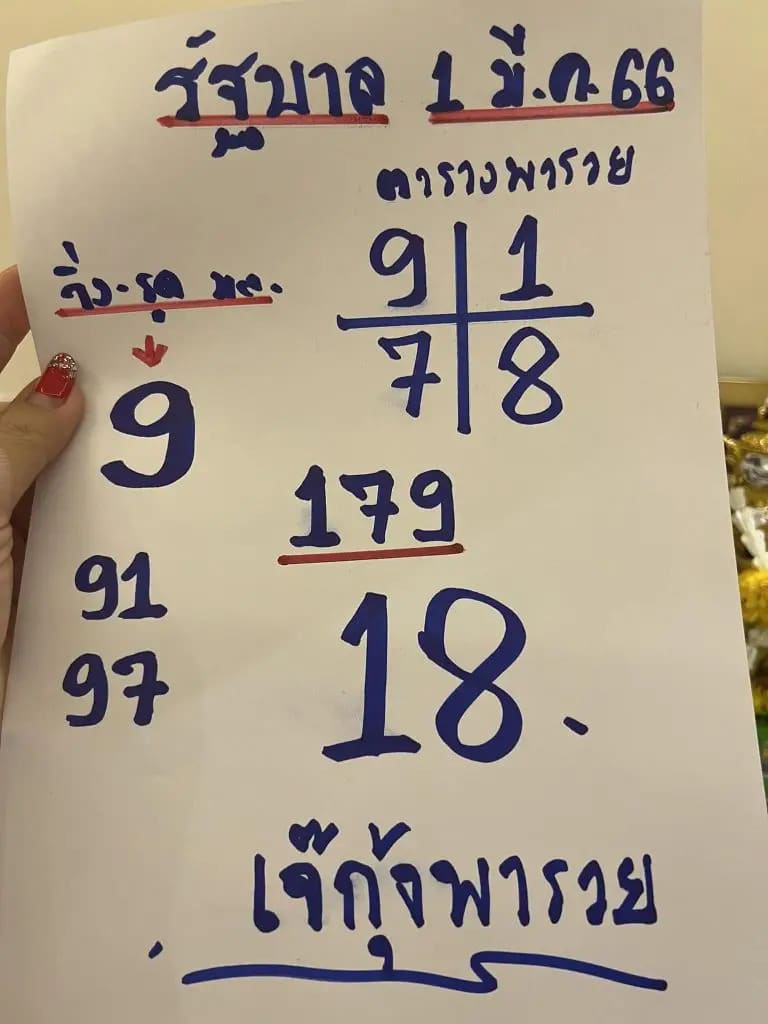 รัฐบาล 1 มี.ค.66
ตารางพารวย
9 1
7 8
วิ่ง-รูด บล.
9
179
91
97
18.
เจ๊กุ้งพารวย